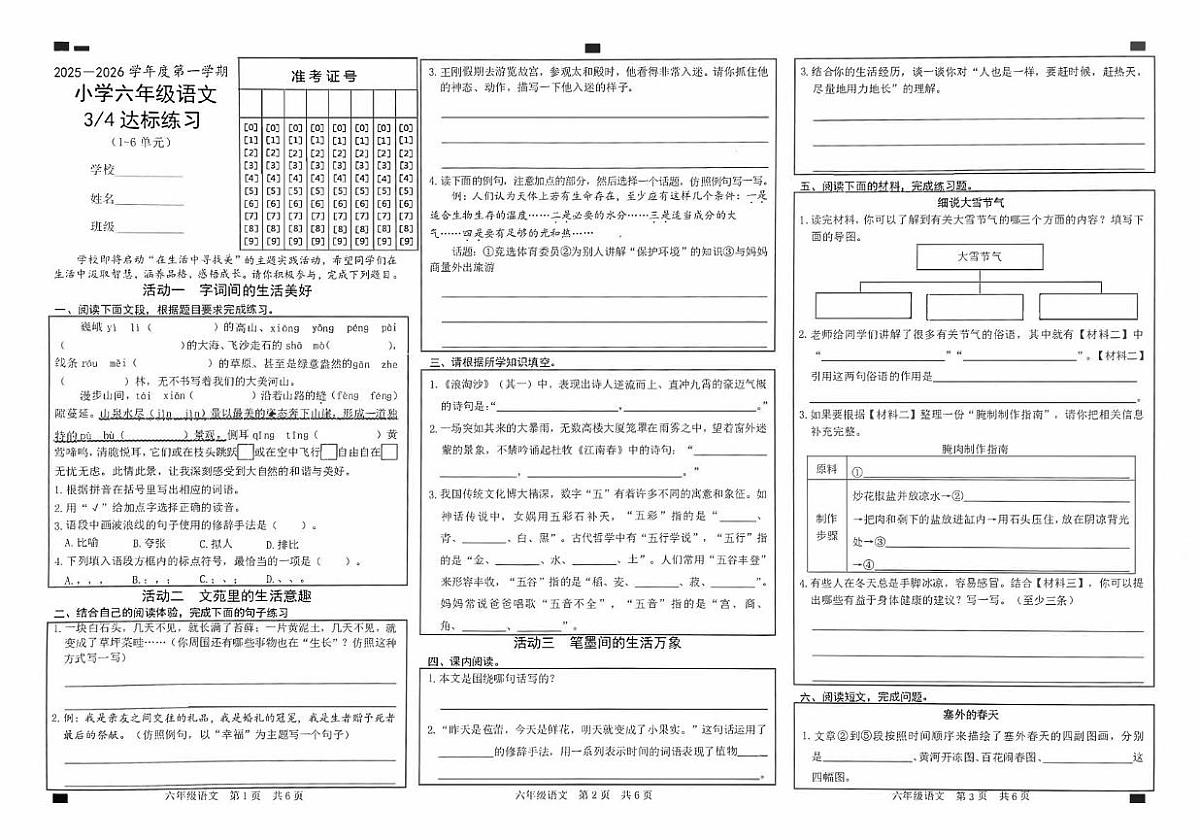 2025—2026 学年度第一学期
小学六年级语文
3/4 达标练习
（1-6 单元）
学校
姓名
班级
准考证号
[0] [0] [0] [0] [0] [0] [0] [0]
[1] [1] [1] [1] [1] [1] [1] [1]
[2] [2] [2] [2] [2] [2] [2] [2]
[3] [3] [3] [3] [3] [3] [3] [3]
[4] [4] [4] [4] [4] [4] [4] [4]
[5] [5] [5] [5] [5] [5] [5] [5]
[6] [6] [6] [6] [6] [6] [6] [6]
[7] [7] [7] [7] [7] [7] [7] [7]
[8] [8] [8] [8] [8] [8] [8] [8]
[9] [9] [9] [9] [9] [9] [9] [9]
学校即将启动“在生活中寻找美”的主题实践活动，希望同学们在
生活中汲取智慧，涵养品格，感悟成长。请你积极参与，完成下列题目。
活动一 字词间的生活美好
一、阅读下面文段，根据题目要求完成练习。
巍峨 yì lì（ ）的高山、xiōng yǒng péng pài
（ ）的大海、飞沙走石的 shā mò（ ），
线条 róu měi（ ）的草原、甚至是绿意盎然的gān zhe
（ ）林，无不书写着我们的大美河山。
漫步山间，tái xiǎn（ ）沿着山路的缝（féng fèng）
隙蔓延。山泉水尽（jìn jǐn）量以最美的姿态奔下山崖，形成一道独
特的pù bù（ ）景观。侧耳 qīng tīng（ ）黄
莺啼鸣，清脆悦耳，它们或在枝头跳跃□或在空中飞行□自由自在□
无忧无虑。此情此景，让我深刻感受到大自然的和谐与美好。
1. 根据拼音在括号里写出相应的词语。
2. 用“√”给加点字选择正确的读音。
3. 语段中画波浪线的句子使用的修辞手法是（ ）。
A. 比喻 B. 夸张 C. 拟人 D. 排比
4. 下列填入语段方框内的标点符号，最恰当的一项是（ ）。
A. ，，， B. ；，； C. ；；、 D. 、、。
活动二 文苑里的生活意趣
二、结合自己的阅读体验，完成下面的句子练习
1. 一块白石头，几天不见，就长满了苔藓；一片黄泥土，几天不见，就
变成了草坪菜畦……（你周围还有哪些事物也在“生长”？仿照这种
方式写一写）
2. 例：我是亲友之间交往的礼品，我是婚礼的冠冕，我是生者赠予死者
最后的祭献。（仿照例句，以“幸福”为主题写一个句子）
六年级语文 第 1 页 共 6 页
3. 王刚假期去游览故宫，参观太和殿时，他看得非常入迷。请你抓住他
的神态、动作，描写一下他入迷的样子。
4. 读下面的例句，注意加点的部分，然后选择一个话题，仿照例句写一写。
例：人们认为天体上若有生命存在，至少应有这样几个条件：一是
适合生物生存的温度……二是必要的水分……三是适当成分的大
气……四是要有足够的光和热……
话题：①竞选体育委员②为别人讲解“保护环境”的知识③与妈妈
商量外出旅游
三、请根据所学知识填空。
1. 《浪淘沙》（其一）中，表现出诗人逆流而上、直冲九霄的豪迈气概
的诗句是：“ ， 。”
2. 一场突如其来的大暴雨，无数高楼大厦笼罩在雨雾之中，望着窗外迷
蒙的景象，不禁吟诵起杜牧《江南春》中的诗句：“
， 。”
3. 我国传统文化博大精深，数字“五”有着许多不同的寓意和象征。如
神话传说中，女娲用五彩石补天，“五彩”指的是“ 、
青、 、白、黑”。古代哲学中有“五行学说”，“五行”指
的是“金、 、水、 、土”。人们常用“五谷丰登”
来形容丰收，“五谷”指的是“稻、麦、 、菽、 ”。
妈妈常说爸爸唱歌“五音不全”，“五音”指的是“宫、商、
角、 、 ”。
活动三 笔墨间的生活万象
四、课内阅读。
1. 本文是围绕哪句话写的？
2. “昨天是苞蕾，今天是鲜花，明天就变成了小果实。”这句话运用了
的修辞手法，用一系列表示时间的词语表现了植物
。
六年级语文 第 2 页 共 6 页
3. 结合你的生活经历，谈一谈你对“人也是一样，要赶时候，赶热天，
尽量地用力地长”的理解。
五、阅读下面的材料，完成练习题。
细说大雪节气
1. 读完材料，你可以了解到有关大雪节气的哪三个方面的内容？填写下
面的导图。
大雪节气
2. 老师给同学们讲解了很多有关节气的俗语，其中就有【材料二】中
“ ”“ ”。【材料二】
引用这两句俗语的作用是
。
3. 如果要根据【材料二】整理一份“腌制制作指南”，请你把相关信息
补充完整。
腌肉制作指南
原料 ①
制作
步骤
炒花椒盐并放凉水→②
→把肉和剩下的盐放进缸内→用石头压住，放在阴凉背光
处→③
→④
4. 有些人在冬天总是手脚冰凉，容易感冒。结合【材料三】，你可以提
出哪些有益于身体健康的建议？写一写。（至少三条）
六、阅读短文，完成问题。
塞外的春天
1. 文章②到⑤段按照时间顺序来描绘了塞外春天的四副图画，分别
是 、黄河开冻图、百花闹春图、 这
四幅图。
六年级语文 第 3 页 共 6 页